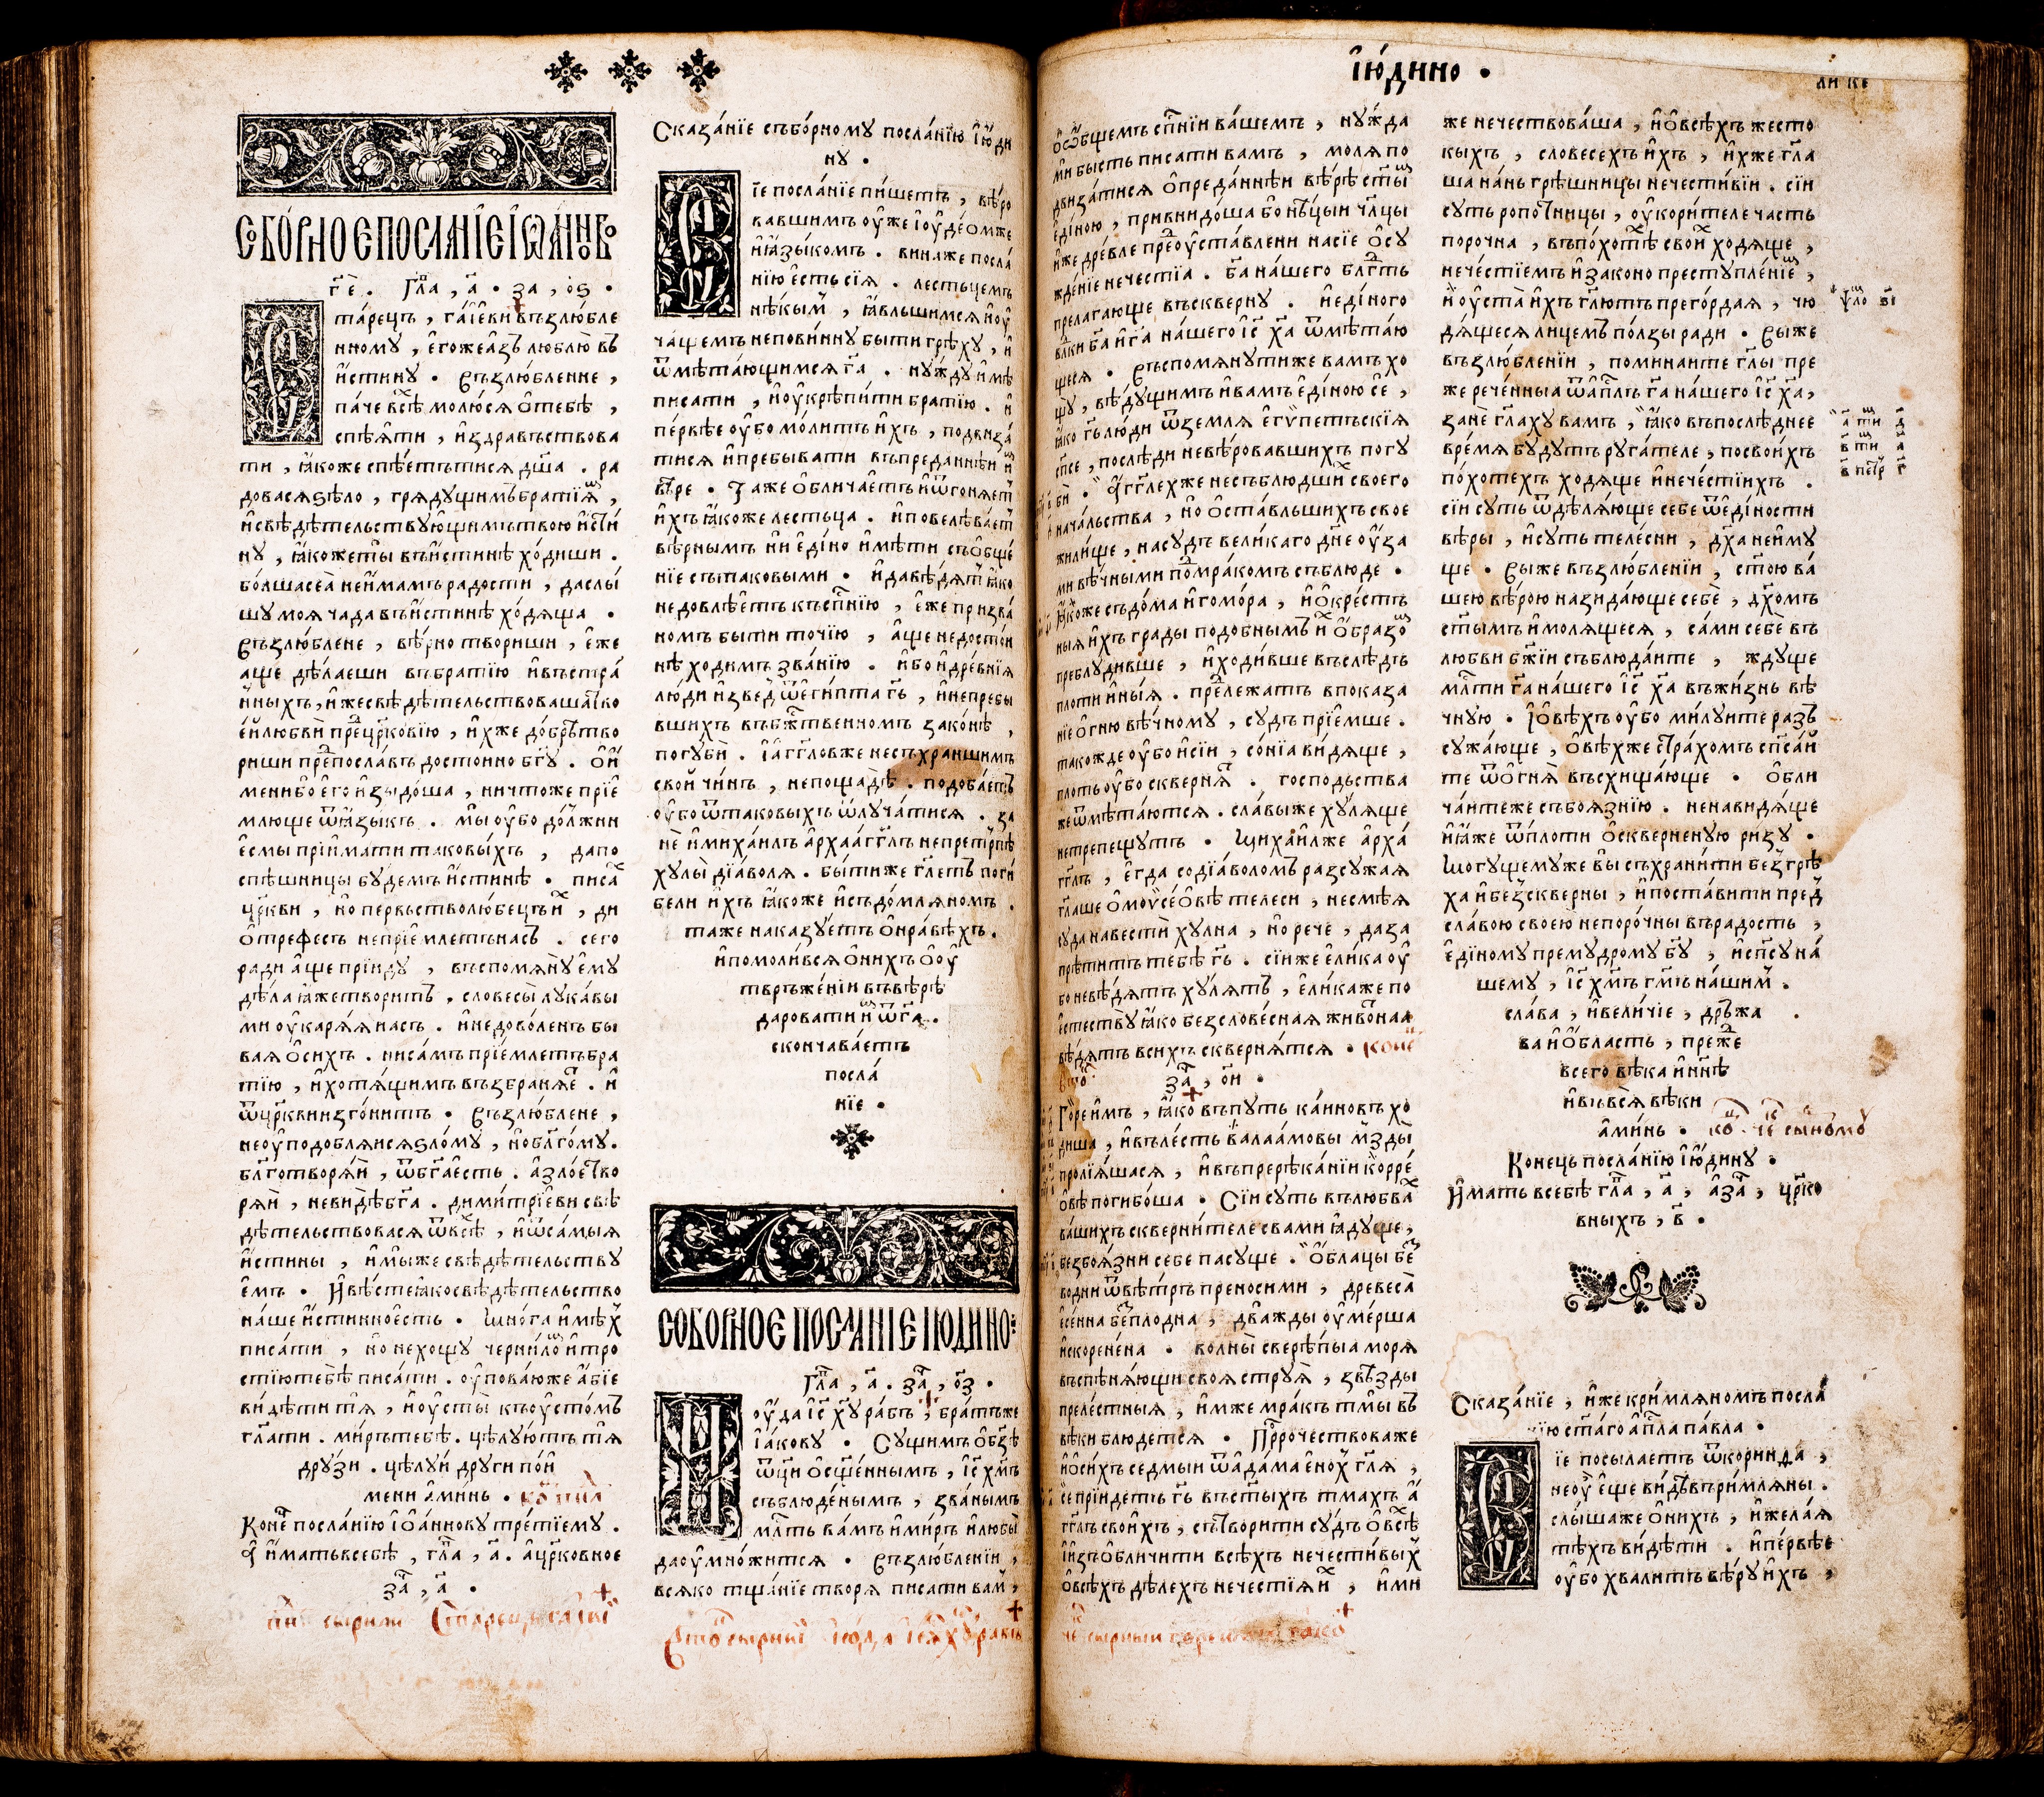 Сбо́рноє посла́нїє іѡа́нново
г҃є . гл҃а , а҃ . за , о҃ѕ .
Ста́рецъ , га́їєви възлю́бле
нному , єгожеа́зъ люблю̀ въ
и́стину . Възлю́бленне ,
па́че всѣ́ молю́ся ѡтебѣ̀ ,
спѣ́яти , и́здравъствова
ти , ꙗ҆́коже спѣ́єтътися дш҃а . ра
довасяѕѣло , грядущимъбратїямъ ,
и҆свѣдѣтельствующимътвою и҆́сти
ну , ꙗ҆́кожеты̀ въи́стинѣ хо́диши .
бо́лшасеа̀ неи́мамърадости , даслы́
шу моя чада въи́стинѣ хо́дяща .
Възлю́блене , вѣ́рно твориши , є҆́же
аще дѣ́лаеши вбра́тїю и҆въстра́
нныхъ , и҆́жесвѣдѣтельствовашатвоє
є҆́йлюбвѝ пре́дцр҃ковїю , и҆́хже до́брѣтво
риши препосла́въ досто́ино бг҃у . Ои҆́
мени бо є҆го̀ и҆зыдо́ша , ничтоже прїє
млюще ѿꙗ҆зы́къ . мы̀ оу҆бо до́лжни
є҆смы прїима́ти таковы́хъ , дапо
спѣ́шницы бу́демъ и҆́стинѣ . писа́хъ
цр҃кви , но первъстволю́бецъи́хъ , ди
отрефесъ непрїє́млетънасъ . сего̀
ради а҆́ще прїиду̀ , въспомяну̀ є҆му̀
дѣла ꙗ҆́жетвори́тъ , словесы̀ лука́вы
ми оу҆каря́я насъ . и҆недово́ленъ бы
вая ѡсихъ . нисамъ прїє́млетъбра
тїю , и҆хотя́щимъ възбраня́єтъ . и҆
ѿцр҃квиизго́нитъ . Възлю́блене ,
неоу҆подобля́исяѕло́му , нобл҃го́му .
бл҃готворя́й , ѿбг҃ає҆́сть . а҆зло́єтво
ря́й , неви́дѣбг҃а . дими́трїєви свѣ
дѣ́тельствовася ѿвсѣ́хъ , и҆ѿса́мыя
и҆́стины , и҆мы́же свѣдѣ́тельству
ємъ . И҆вѣ́стеꙗ҆косвѣдѣ́тельство
на́ше и҆́стинноє҆сть . Мно́га и҆мѣ́хъ
писа́ти , но нехощу̀ черни́ломъ и҆тро
стїютебѣ̀ писа́ти . оу҆пова́юже а҆́бїє
ви́дѣти тя , и҆оу҆сты̀ къоу҆сто́мъ
гл҃ати . ми́рътебѣ . цѣлу́ютъ тя
дру́зи . цѣлу́й други пои́
мени а҆ми́нь .
Коне́цъ посла́нїю іо҆а́ннову тре́тїєму .
И҆ и҆́матьвсебѣ̀ , гл҃а , а҃ . а҆цр҃ковноє
за҃ , а҃ .
Сказа́нїє съборному посла́нїю і҆ю́ди
ну .
Сїє посла́нїє пи́шетъ , вѣ́ро
вавшимъ оу҆же і҆оу҆де́омже
и҆ꙗ҆зы́комъ . вина́же посла́
нїю є҆́сть сїя̀ . лестьце́мъ
нѣ́кымъ , ꙗ҆́вльшимся и҆оу҆
ча́щемъ непови́нну быти грѣ́ху , и҆
ѿмѣта́ющимся гд҃а . нужду и҆мѣ̀
писа́ти , и҆оу҆крѣпи́ти бра́тїю . и҆
пе́рвѣе оу҆бо мо́литъ и҆́хъ , подвиза́
тися и҆пребыва́ти въпре́даннѣи и҆мъ
вѣ́ре . Таже ѡблича́єтъ и҆ѿгоня́єтъ
и҆хъ ꙗ҆́коже лестьца . и҆повелѣва́єтъ
вѣ́рнымъ ни є҆ди́но и҆мѣ́ти съобще́
нїє сътаковыми . и҆давѣ́дятъ ꙗ҆ко
недовлѣ́єтъ къспс҃е́нїю , є҆́же призва́
номъ быти точїю , а҆ще недосто́и
нѣ хо́димъ зва́нїю . и҆бо и҆дре́внїя
лю́ди и҆зве́дъ ѿє҆ги́пта гд҃ь , и҆непребы
вшихъ въбж҃ственномъ зако́нѣ ,
погуби́ . И҆а́гг҃ловже несъхрани́шимъ
свои́ чи́нъ , непощадѣ̀ . подоба́єтъ
оу҆бо ѿтаковыхъ ѿлуча́тися . за
нѐ и҆миха́илъ а҆рха́аг҃глъ непретѣрпѣ
хулы̀ дїа́воля . быти же гл҃етъ поги́
бели и҆́хъ ꙗ҆́коже и҆съдо́мляномъ .
таже наказу́єтъ ѡнра́вѣхъ .
и҆помоли́вся ѡнихъ ѡоу҆
твръже́нїи въвѣ́рѣ
даровати и҆мъ ѿгд҃а .
сконча́ваєтъ
посла́
нїє .
Соборноє посланїє і҆ю́дино :
гл҃а , а҃ . за҃ , о҃з .
І҆оу҆да і҆с҃ ху҃ ра́бъ , бра́тъже
і҆а́кову . Сущимъ ѡбз҃ѣ
ѿцѝ ѡсщ҃е́ннымъ , і҆с҃ хм҃ъ
съблюде́нымъ , зва́нымъ
мл҃ть ва́мъ и҆ми́ръ и҆любы̀
даоу҆мно́жится . Възлю́бленїи ,
всяко тща́нїє творя̀ писа́ти ва́мъ ,
І҆ю́дино .
ѡѡ́бщемъ сп҃нїи ва́шемъ , ну́жда
мѝ бысть писа́ти вамъ , моля̀ по
двиза́тися ѡпреда́ннѣи вѣ́рѣ ст҃ы́мъ
є҆ди́ною , привнидо́ша бо нѣ́цыи чл҃цы
и҆́же дре́вле преоу҆ста́влени насїє ѡсу
жде́нїє нече́стїа . бг҃а на́шего бл҃гть
прелагающе въскверну . и҆є҆ди́ного
влд҃ки бг҃а и҆гд҃а на́шего і҆с҃ ха҃ ѿмѣта́ю
щеся . Въспомянутиже вамъ хо
щу̀ , вѣ́дущимъ и҆вамъ є҆ди́ною сѐ ,
ꙗ҆ко гд҃ь лю́ди ѿземля̀ є҆гѵ́петъскїя
сп҃се , послѣди невѣ́ровавшихъ погу
бѝ . А҆́гг҃лехже несъблю́дшихъ своего
нача́льства , но ѡста́вльшихъ свое
жили́ще , насу́дъ вели́каго дн҃е оу҆́за
ми вѣ́чными помра́комъ съблюде .
Ꙗ҆́коже съдо́ма и҆гомо́ра , и҆ѡкре́стъ
ныя и҆́хъ гра́ды подо́бнымъ и҆́мъ ѡ́бразомъ
преблуди́вше , и҆ходи́вше въслѣдъ
плоти и҆ны́я . предлежа́тъ впоказа
нїє ѡгню вѣ́чному , су́дъ прїє́мше .
та́кожде оу҆бо и҆сїи , со́нїа ви́дяще ,
плоть оу҆бо скверня́тъ . госпо́дьства
же ѿмѣта́ются . сла́выже ху́ляще
нетрепещутъ . Михаи́лже а҆рха́
гг҃лъ , є҆гда̀ содїа́воломъ разсужая
гл҃аше ѡмоѵсе́ѡвѣ телеси , несмѣ́я
суда навестѝ ху́лна , но речѐ , даза
прѣтитъ тебѣ гд҃ь . сїиже є҆ли́ка оу҆
бо невѣ́дятъ ху́лятъ , є҆ли́каже по
є҆стеству̀ ꙗ҆́ко безслове́сная живо́тнаа
вѣ́дятъ всихъ скверня́тся .
за҃ , о҃и .
Го́ре и҆́мъ , ꙗ҆́ко въпуть ка́иновъ хо
диша , и҆въле́сть вала́амовы мзды̀
пролїя́шася , и҆въпререка́нїи корре́
ѡвѣ погибо́ша . Сїи суть влюбва́хъ
ва́шихъ скверни́теле свами ꙗ҆ду́ще ,
безбоя́зни себе пасуще . ѡ́блацы без
водни ѿвѣ́тръ преносими , древеса̀
є҆се́нна безпло́дна , два́жды оу҆ме́рша
и҆скорене́на . во́лны сверѣпыа моря
въспѣня́ющи своя струя̀ , звѣ́зды
преле́стныя , и҆мже мра́къ тмы̀ въ
вѣ́ки блюдется . Прр҃очествоваже
и҆ѡси́хъ се́дмыи ѿа҆да́ма є҆но́хъ гл҃я ,
се прїидетъ гд҃ь въст҃ыхъ тма́хъ а҆́
гг҃лъ свои́хъ , сътвори́ти су́дъ ѡвсѣ́хъ
и҆и҆зъѡбличи́ти всѣ́хъ нечести́выхъ
ѡвсѣ́хъ дѣ́лехъ нечестїя и҆́хъ , и҆ми
же нечествова́ша , и҆ѡвсѣ́хъ жесто
кыхъ , словесехъ и҆́хъ , и҆хже гл҃а
ша на́нь грѣшницы нечести́вїи . сїи
суть ропо́тницы , оу҆кори́теле часть
порочна , въпо́хотехъ свои́хъ ходяще ,
нече́стїемъ и҆законо преступле́нїємъ ,
и҆ оу҆ста̀ и҆́хъ гл҃ютъ прего́рдая , чю
дя́щеся лице́мъ по́лзы ради . Выже
възлю́бленїи , помина́ите гл҃ы пре
же рече́нныа ѿа҆пл҃ъ гд҃а на́шего і҆с҃ ха҃ ,
занѐ гл҃аху вамъ , ꙗ҆́ко въпослѣ́днее
вре́мя бу́дутъ руга́теле , посвои́хъ
по́хотехъ ходяще и҆нече́стїихъ .
сїи суть ѿдѣля́юще себе ѿє҆ди́ности
вѣ́ры , и҆суть теле́сни , дх҃а неи́му
ще . Выже възлю́бленїи , ст҃ою ва́
шею вѣ́рою назида́юще себѐ , дх҃омъ
ст҃ымъ и҆моля́щеся , са́ми себѐ въ
любви бж҃їи съблюда́ите , ждуще
мл҃ти гд҃а на́шего і҆с҃ ха҃ въжи́знь вѣ́
чную . И҆ѡвѣ́хъ оу҆бо ми́луите разъ
сужа́юще , ѡвѣ́хже стра́хомъ сп҃са́й
те ѿѡгня̀ въсхища́юще . ѡбли
ча́итеже събоя́знїю . ненави́дяще
и҆ꙗ҆́же ѿпло́ти ѡскверненую ри́зу .
Могу́щемуже вы̀ съхрани́ти безгрѣ
ха и҆безскверны , и҆поста́вити пред
сла́вою своею непоро́чны въра́дость ,
є҆ди́ному прему́дрому бг҃у , и҆сп҃су на́
шему , і҆с҃ хм҃ъ гм҃ъ на́шимъ .
сла́ва , и҆вели́чїе , дръ́жа
ва и҆ѡ́бласть , преже
всего вѣ́ка и҆нн҃ѣ
и҆въвся̀ вѣ́ки
а҆ми́нь .
Коне́цъ посла́нїю і҆ю́дину .
И҆́мать всебѣ гл҃а , а҃ , а҆за҃ , цр҃ко
вныхъ , в҃ .
Сказа́нїє , и҆́же кри́мляномъ посла́
нїю ст҃а́го а҆пл҃а па́вла .
Сїє посыла́етъ ѿкорин́да ,
неоу҆ є҆ще ви́дѣвъри́мляны .
слы́шаже ѡнихъ , и҆жела́я
тѣ́хъ ви́дѣти . и҆пе́рвѣе
оу҆бо хвалитъ вѣ́ру и҆́хъ ,